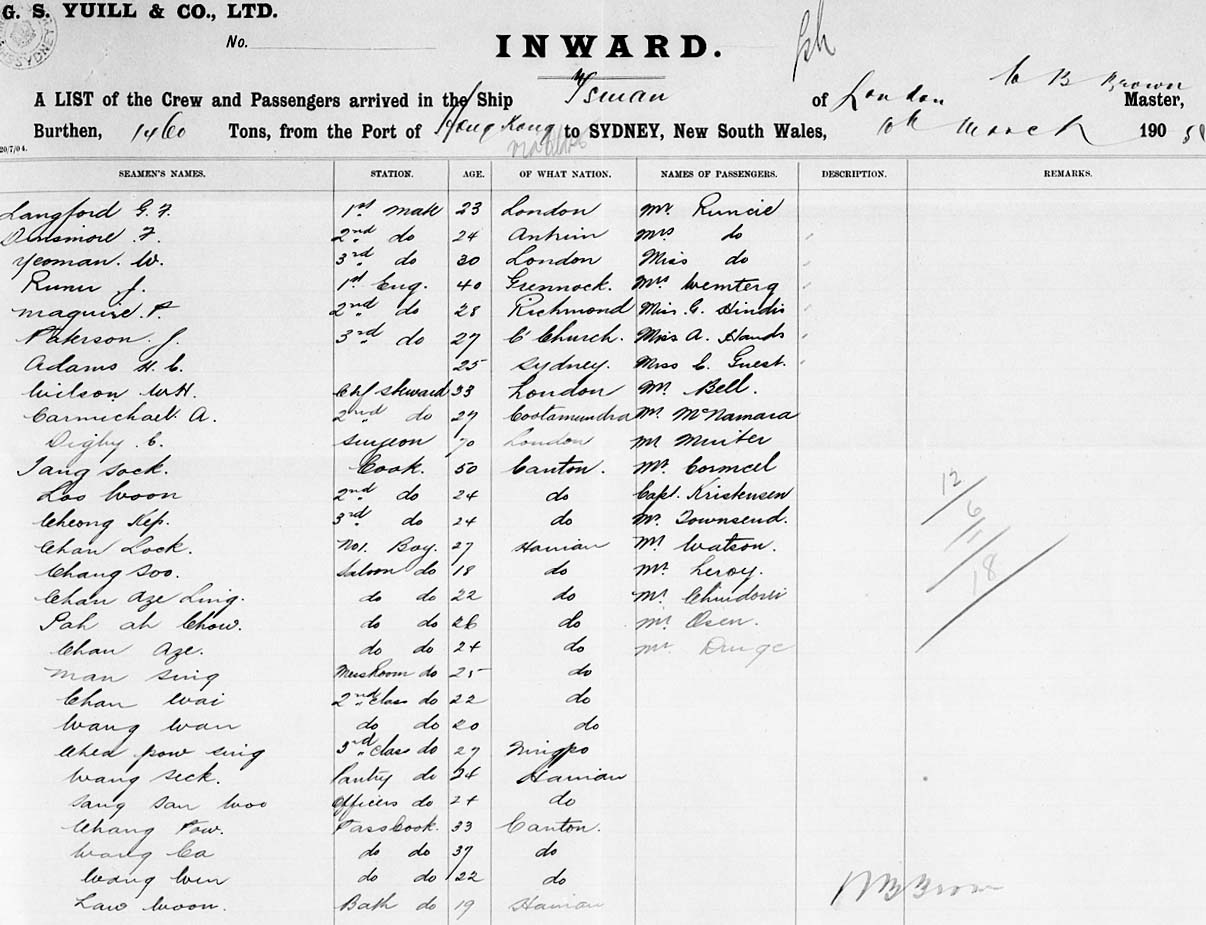 G. S. YUILL & CO., LTD.
SYDNEY
No.
INWARD.
A LIST of the Crew and Passengers arrived in the Ship Tsinan of London C B Brown Master,
Burthen, 1460 Tons, from the Port of Hong Kong to SYDNEY, New South Wales, 10th March 190
20/7/04.
SEAMEN'S NAMES. STATION. AGE. OF WHAT NATION. NAMES OF PASSENGERS. DESCRIPTION. REMARKS.
Langford G. F. 1st Mate 23 London Mr Runcie
Dinsmore F. 2nd do 24 Antrim Mrs do
Yeoman. W. 3rd do 30 London Miss do
J. 1st Eng. 40 Greenock. Mrs
Maguire P. 2nd do 28 Richmond Miss G. Hindis
Paterson. J. 3rd do 27 C Church. Miss A. Hands
Adams H. C. 25 Sydney. Miss C. Guest.
Wilson W.H. Chf Steward 33 London Mr Bell.
Carmichael A. 2nd do 27 Cootamundra Mr McNamara
Digby. C. Surgeon 70 London Mr Munter
Tang Sock. Cook. 50 Canton. Mr
Loo Woon 2nd do 24 do Capt. Kristensen
Cheong Kep. 3rd do 24 do Mr Townsend.
Chan Lock. No1. Boy. 27 Hainan Mr Watson.
Chang Soo. Saloon do 18 do Mr Leroy.
Chan Aze Ling. do do 22 do Mr
Pah ah Chow. do do 26 do Mr Osen.
Chan Aze. do do 24 do Mr
Man Sing Messroom do 25 do
Chan Wai 2nd class do 22 do
Wang Wan do do 20 do
Chea pow sing 3rd class do 27 Ningpo
Wang Seck. Pantry do 24 Hainan
Sang San Woo Officers do 24 do
Chang Pow. Pass Cook. 33 Canton.
Wang Ca do do 37 do
Wang Win do do 22 do
Law Woon. Bath do 19 Hainan
12
6
11
18
Brown